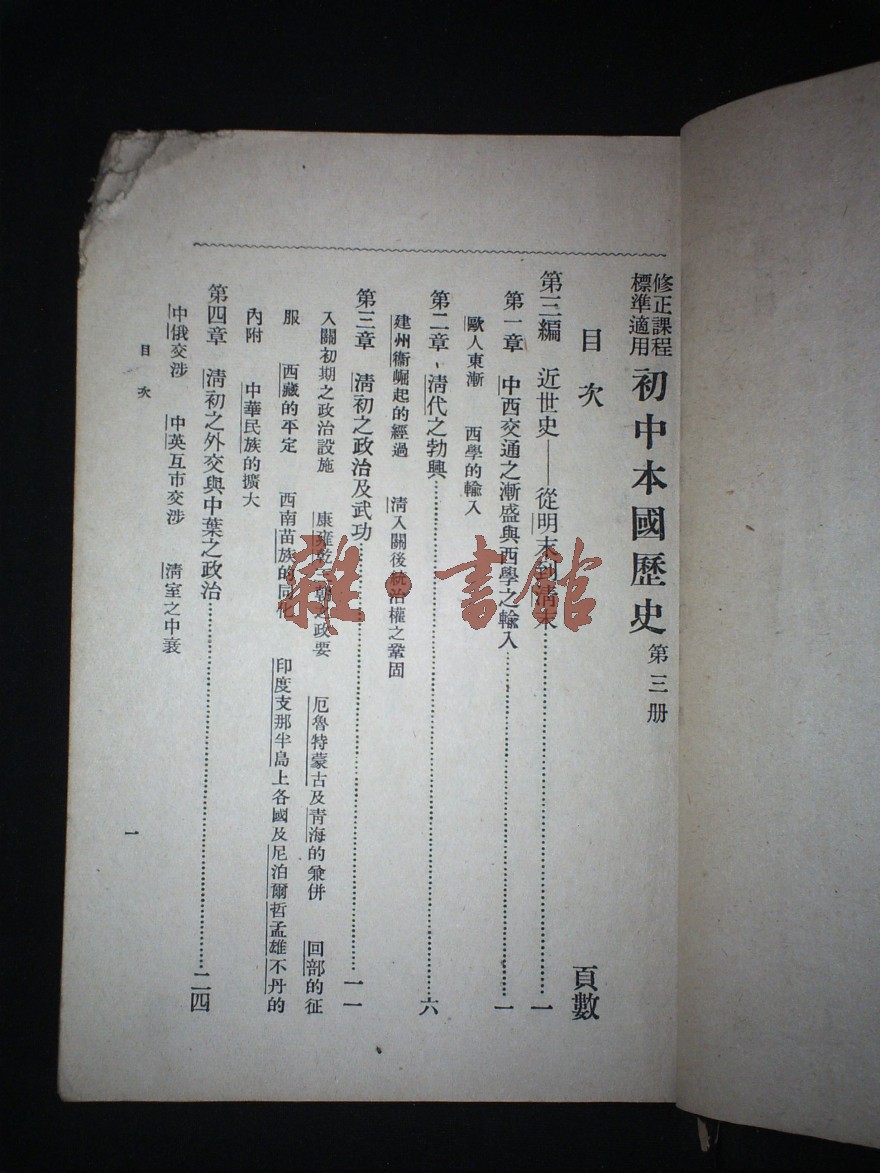 修正課程
標準適用
初中本國歷史 第三册
目次 頁數
第三編 近世史——從明末到清末………一
第一章 中西交通之漸盛與西學之輸入………一
歐人東漸 西學的輸入
第二章 清代之勃興………六
建州衞崛起的經過 清入關後統治權之鞏固
第三章 清初之政治及武功………一一
入關初期之政治設施 康雍乾三朝之政要 厄魯特蒙古及青海的兼併 回部的征
服 西藏的平定 西南苗族的同化 印度支那半島上各國及尼泊爾哲孟雄不丹的
內附 中華民族的擴大
第四章 清初之外交與中葉之政治………二四
中俄交涉 中英互市交涉 清室之中衰
目次
一
雜·書館